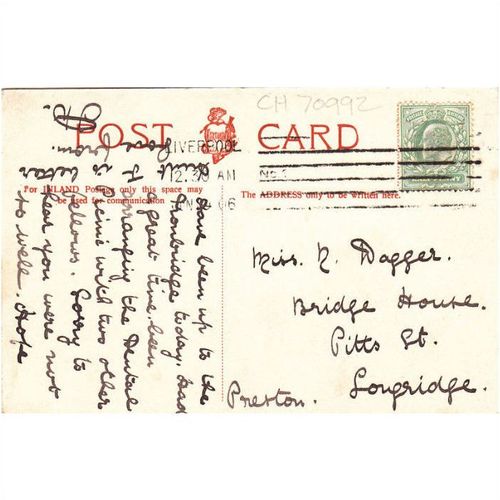 CH 70992
POST CARD
LIVERPOOL
12.30 AM
No. 3
06
For INLAND Postage only this space may
be used for communication
The ADDRESS only to be written here.
Have been up to the
today. Had
a great time been
arranging the Dental
Scene with two other
fellows. Sorry to
hear you were not
so well. Hope
F is better
Love from
Miss. N. Dagger.
Bridge House.
Pitts St.
Longridge.
Preston.